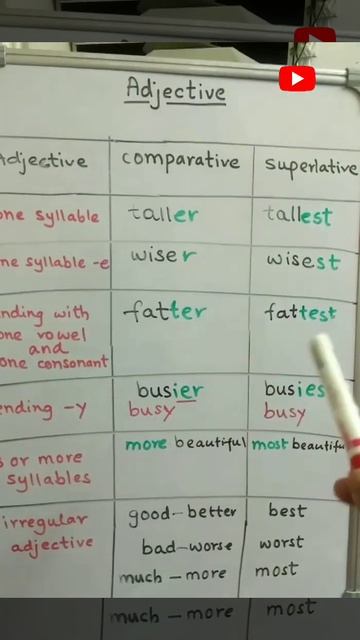 Adjective
Adjective comparative superlative
one syllable taller tallest
one syllable -e wiser wisest
ending with
one vowel
and
one consonant
fatter fattest
ending -y
busier
busy
busies
busy
or more
syllables
more beautiful most beautifu
irregular
adjective
good - better best
bad - worse worst
much - more most
much - more most